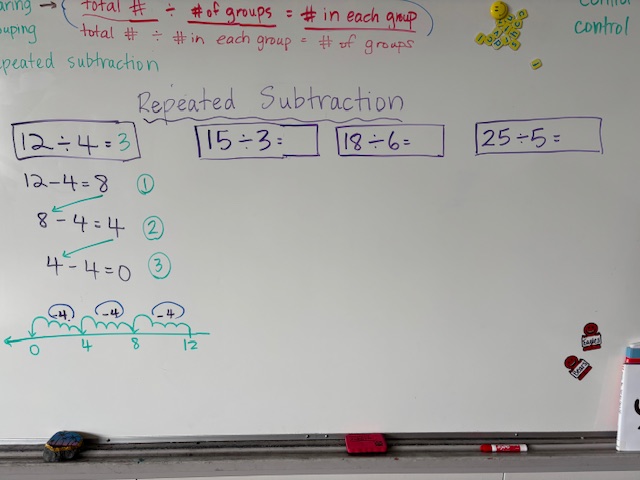 aring → total # ÷ # of groups = # in each group
ouping total # ÷ # in each group = # of groups
peated subtraction
control
Repeated Subtraction
12 ÷ 4 = 3
15 ÷ 3 =
18 ÷ 6 =
25 ÷ 5 =
12 - 4 = 8 ①
8 - 4 = 4 ②
4 - 4 = 0 ③
-4 -4 -4
0 4 8 12
Eagles
Bears